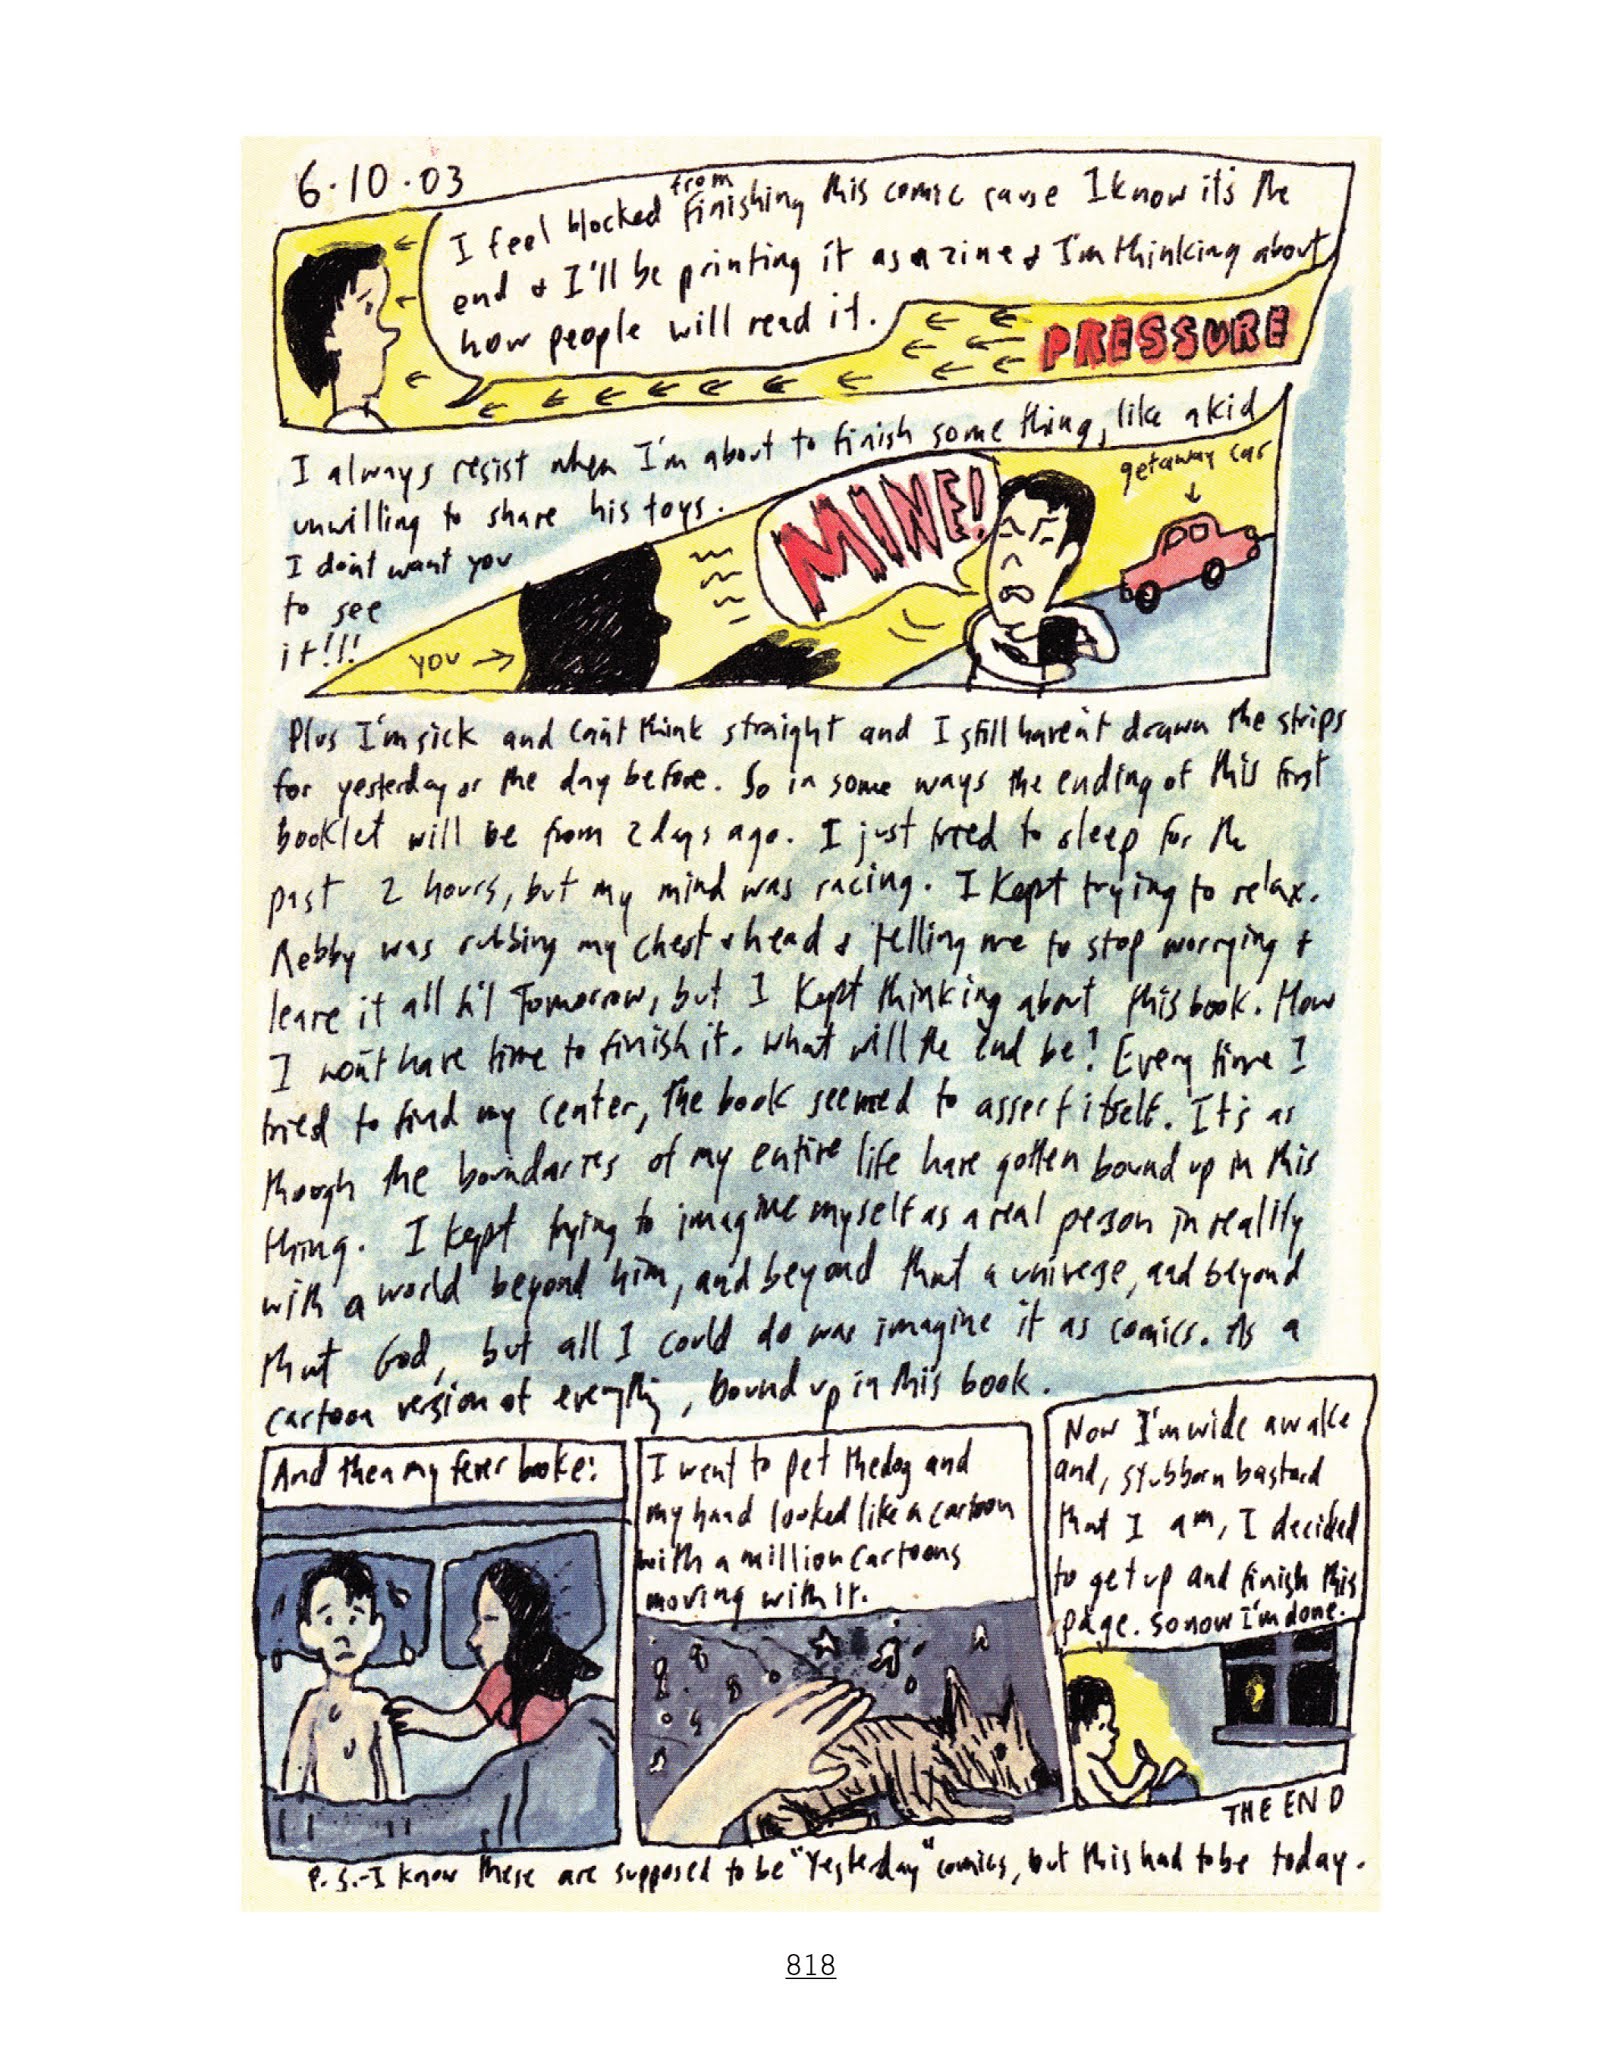 6.10.03
I feel blocked from finishing this comic cause I know it's the
end & I'll be printing it as a zine & I'm thinking about
how people will read it.
PRESSURE
I always resist when I'm about to finish something, like a kid
unwilling to share his toys.
I don't want you
to see
it!!!
YOU →
MINE!
getaway car
Plus I'm sick and can't think straight and I still haven't drawn the strips
for yesterday or the day before. So in some ways the ending of this first
booklet will be from 2 days ago. I just tried to sleep for the
past 2 hours, but my mind was racing. I kept trying to relax.
Rebby was rubbing my chest & head & telling me to stop worrying &
leave it all til Tomorrow, but I kept thinking about this book. How
I won't have time to finish it. What will the end be? Every time I
tried to find my center, the book seemed to assert itself. It's as
though the boundaries of my entire life have gotten bound up in this
thing. I kept trying to imagine myself as a real person in reality
with a world beyond him, and beyond that a universe, and beyond
that God, but all I could do was imagine it as comics. As a
cartoon version of everything, bound up in this book.
And then my fever broke:
I went to pet the dog and
my hand looked like a cartoon
with a million cartoons
moving with it.
Now I'm wide awake
and, stubborn bastard
that I am, I decided
to get up and finish this
page. So now I'm done.
THE END
P.S.-I know these are supposed to be "Yesterday" comics, but this had to be today.
818